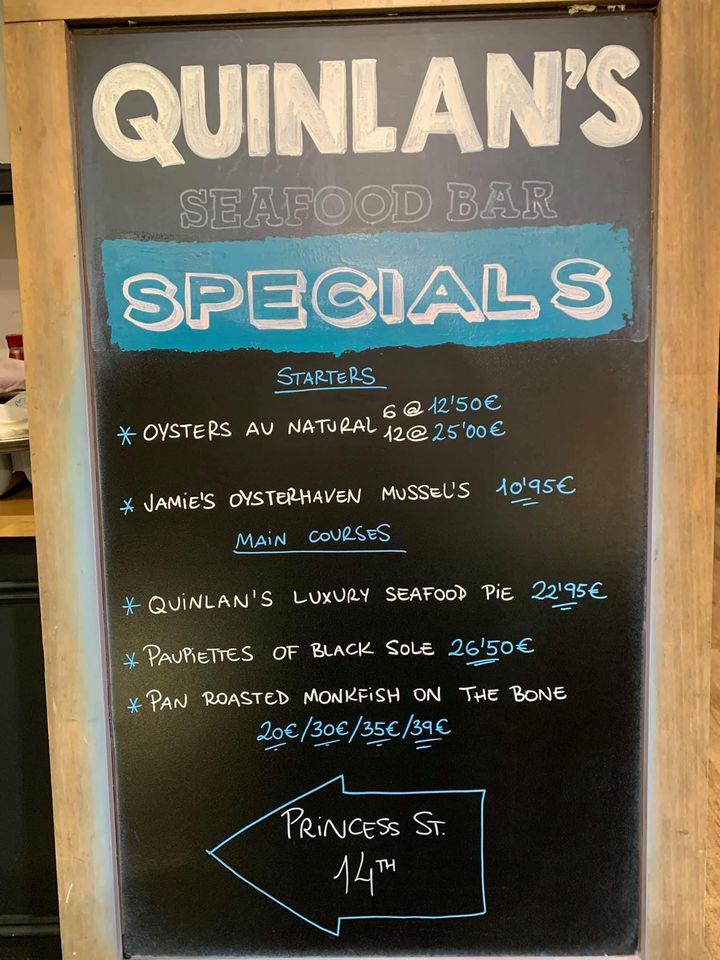 QUINLAN'S
SEAFOOD BAR
SPECIALS
STARTERS
* OYSTERS AU NATURAL 6 @ 12'50€
12@ 25'00€
* JAMIE'S OYSTERHAVEN MUSSEL'S 10'95€
MAIN COURSES
* QUINLAN'S LUXURY SEAFOOD PIE 22'95€
* PAUPIETTES OF BLACK SOLE 26'50€
* PAN ROASTED MONKFISH ON THE BONE
20€/30€/35€/39€
PRINCESS ST.
14TH